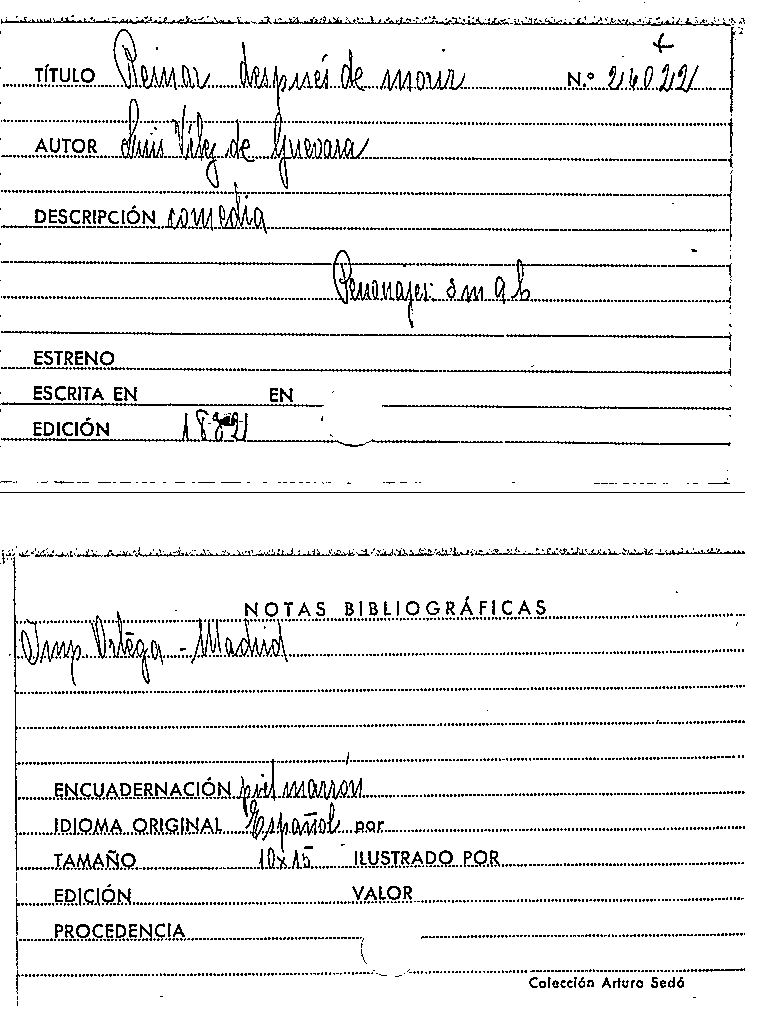 TÍTULO Reinar después de morir N.º 24022
AUTOR Luis Vélez de Guevara
DESCRIPCIÓN comedia
Personajes: 3 m 9 h
ESTRENO
ESCRITA EN EN
EDICIÓN
NOTAS BIBLIOGRÁFICAS
Imp Ortega - Madrid
ENCUADERNACIÓN piel marron
IDIOMA ORIGINAL Español por
TAMAÑO 10x15 ILUSTRADO POR
EDICIÓN VALOR
PROCEDENCIA
Colección Arturo Sedó